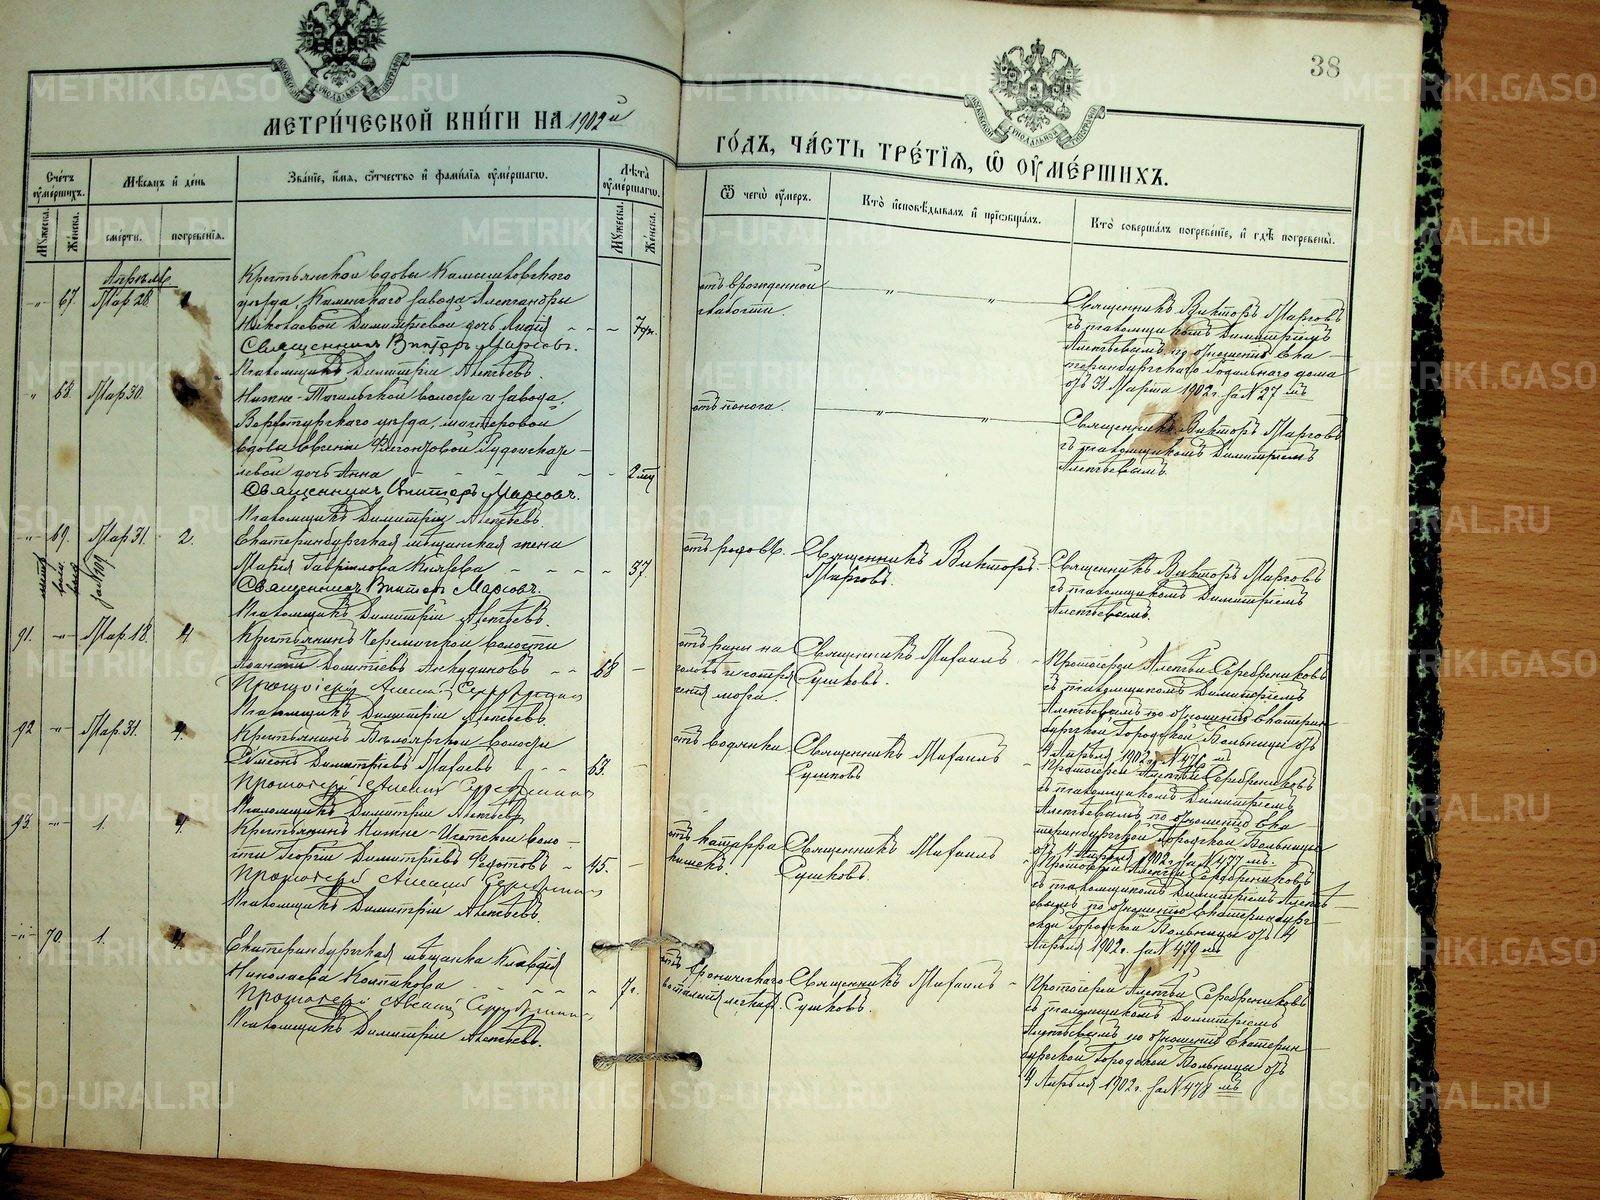 38
МЕТРИ́ЧЕСКОЙ КНИ́ГИ НА 1902 й
ГО́ДЪ, ЧА́СТЬ ТРЕ́ТІѦ, Ѡ ОУМЕ́РШИХЪ.
Счетъ оуме́ршихъ.
Мѣсѧцъ и де́нь
Зва́нїе, и́мѧ, о́тчество и фами́лїѧ оуме́ршагѡ.
Лѣта оуме́ршагѡ.
Ѿ чегѡ̀ оу́меръ.
Кто̀ исповѣ́дывалъ и прїѡбща́лъ.
Кто̀ соверша́лъ погребе́нїе, и гдѣ̀ погребены̀.
Мꙋжеска.
Же́нска.
сме́рти.
погребе́нїѧ.
Мꙋжеска.
Же́нска.
67. Мар. 28. 1
Крестьянской вдовы Камышловскаго
уѣзда, Каменскаго завода Александры
Николаевой Димитріевой дочь Лидія
Священникъ Викторъ
Псаломщикъ Димитрій Алексѣевъ.
отъ врожденной
слабости.
Священникъ Викторъ
съ псаломщикомъ Димитріемъ
Алексѣевымъ по отношенію Ека-
теринбургскаго Родильнаго дома
отъ 31 Марта 1902 г. за № 27 мъ
68. Мар. 30.
Нижне-Тагильской волости и завода,
Верхотурскаго уѣзда, мастеровой
вдовы Евгеніи
дочь Анна
Священникъ Викторъ
Псаломщикъ Димитрій Алексѣевъ.
отъ поноса.
Священникъ Викторъ
съ псаломщикомъ Димитріемъ
Алексѣевымъ.
69. Мар. 31. 2.
Екатеринбургская мѣщанская жена
Марія Гавріилова Князева 37.
Священникъ Викторъ
Псаломщикъ Димитрій Алексѣевъ.
отъ родовъ.
Священникъ Викторъ
Священникъ Викторъ
съ псаломщикомъ Димитріемъ
Алексѣевымъ.
91. Мар. 18. 4
Крестьянинъ волости
68
Протоіерей Алексій
Псаломщикъ Димитрій Алексѣевъ.
отъ раны на
головѣ и сотря-
сенія мозга.
Священникъ Михаилъ
Сушковъ.
Протоіерей Алексѣй Серебрениковъ
съ псаломщикомъ Димитріемъ
Алексѣевымъ по отношенію Екатерин-
бургской Городской Больницы отъ
4 Апрѣля 1902 г. № 476 мъ
92 Мар. 31. 4.
Крестьянинъ Бѣлоярской волости
Симеонъ Димитріевъ 63.
Протоіерей Алексій
Псаломщикъ Димитрій Алексѣевъ
отъ водянки
Священникъ Михаилъ
Сушковъ
Протоіерей Алексѣй Серебрениковъ
съ псаломщикомъ Димитріемъ
Алексѣевымъ по отношенію Ека-
теринбургской Городской Больницы
отъ 4 Апрѣля 1902 г. за № 477 мъ.
93. 1. 4.
Крестьянинъ Нижне-Исетской воло-
сти Георгій Димитріевъ Федотовъ 45.
Протоіерей Алексій
Псаломщикъ Димитрій Алексѣевъ.
отъ катарра
кишекъ.
Священникъ Михаилъ
Сушковъ.
Протоіерей Алексѣй Серебрениковъ
съ псаломщикомъ Димитріемъ Алексѣ-
евымъ по отношенію Екатеринбург-
ской Городской Больницы отъ 4
Апрѣля 1902 г. за № 479 мъ
70. 1. 4.
Екатеринбургская мѣщанка Клавдія
Николаева Колпакова 7 г.
Протоіерей Алексій
Псаломщикъ Димитрій Алексѣевъ.
отъ хроническаго
воспаленія легкихъ.
Священникъ Михаилъ
Сушковъ.
Протоіерей Алексѣй Серебрениковъ
съ псаломщикомъ Димитріемъ
Алексѣевымъ по отношенію Екатерин-
бургской Городской Больницы отъ
4 Апрѣля 1902 г. за № 478 мъ
METRIKI.GASO-URAL.RU